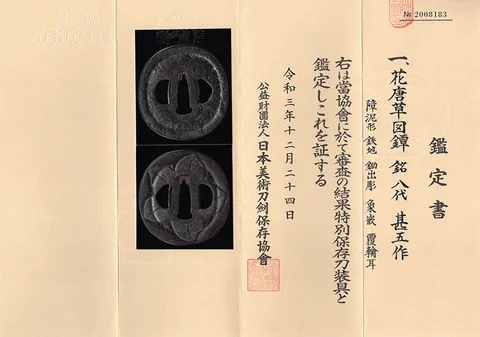 № 2008183
鑑定書
一、花唐草図鐔 銘 八代 甚五作
障泥形 鉄地 鋤出彫 象嵌 覆輪耳
右は當協會に於て審査の結果特別保存刀装具と
鑑定しこれを証する
令和三年十二月二十四日
公益財團法人 日本美術刀劍保存協會